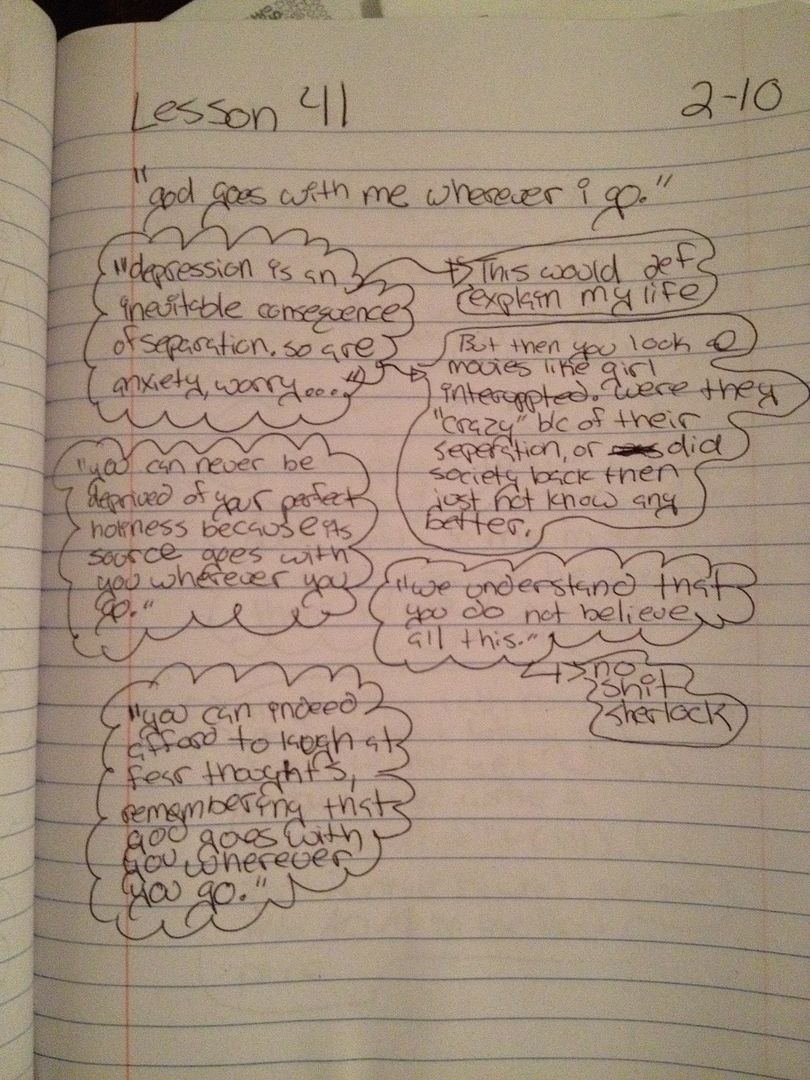 Lesson 41
2-10
"god goes with me wherever i go."
"depression is an
inevitable consequence
of separation. so are
anxiety, worry..."
This would def
explain my life
But then you look @
movies like girl
interuppted. were they
"crazy" b/c of their
seperation, or did
society back then
just not know any
better.
"you can never be
deprived of your perfect
holiness because its
source goes with
you wherever you
go."
"we understand that
you do not believe
all this."
no
shit
sherlock
"you can indeed
afford to laugh at
fear thoughts,
remembering that
god goes with
you wherever
you go."